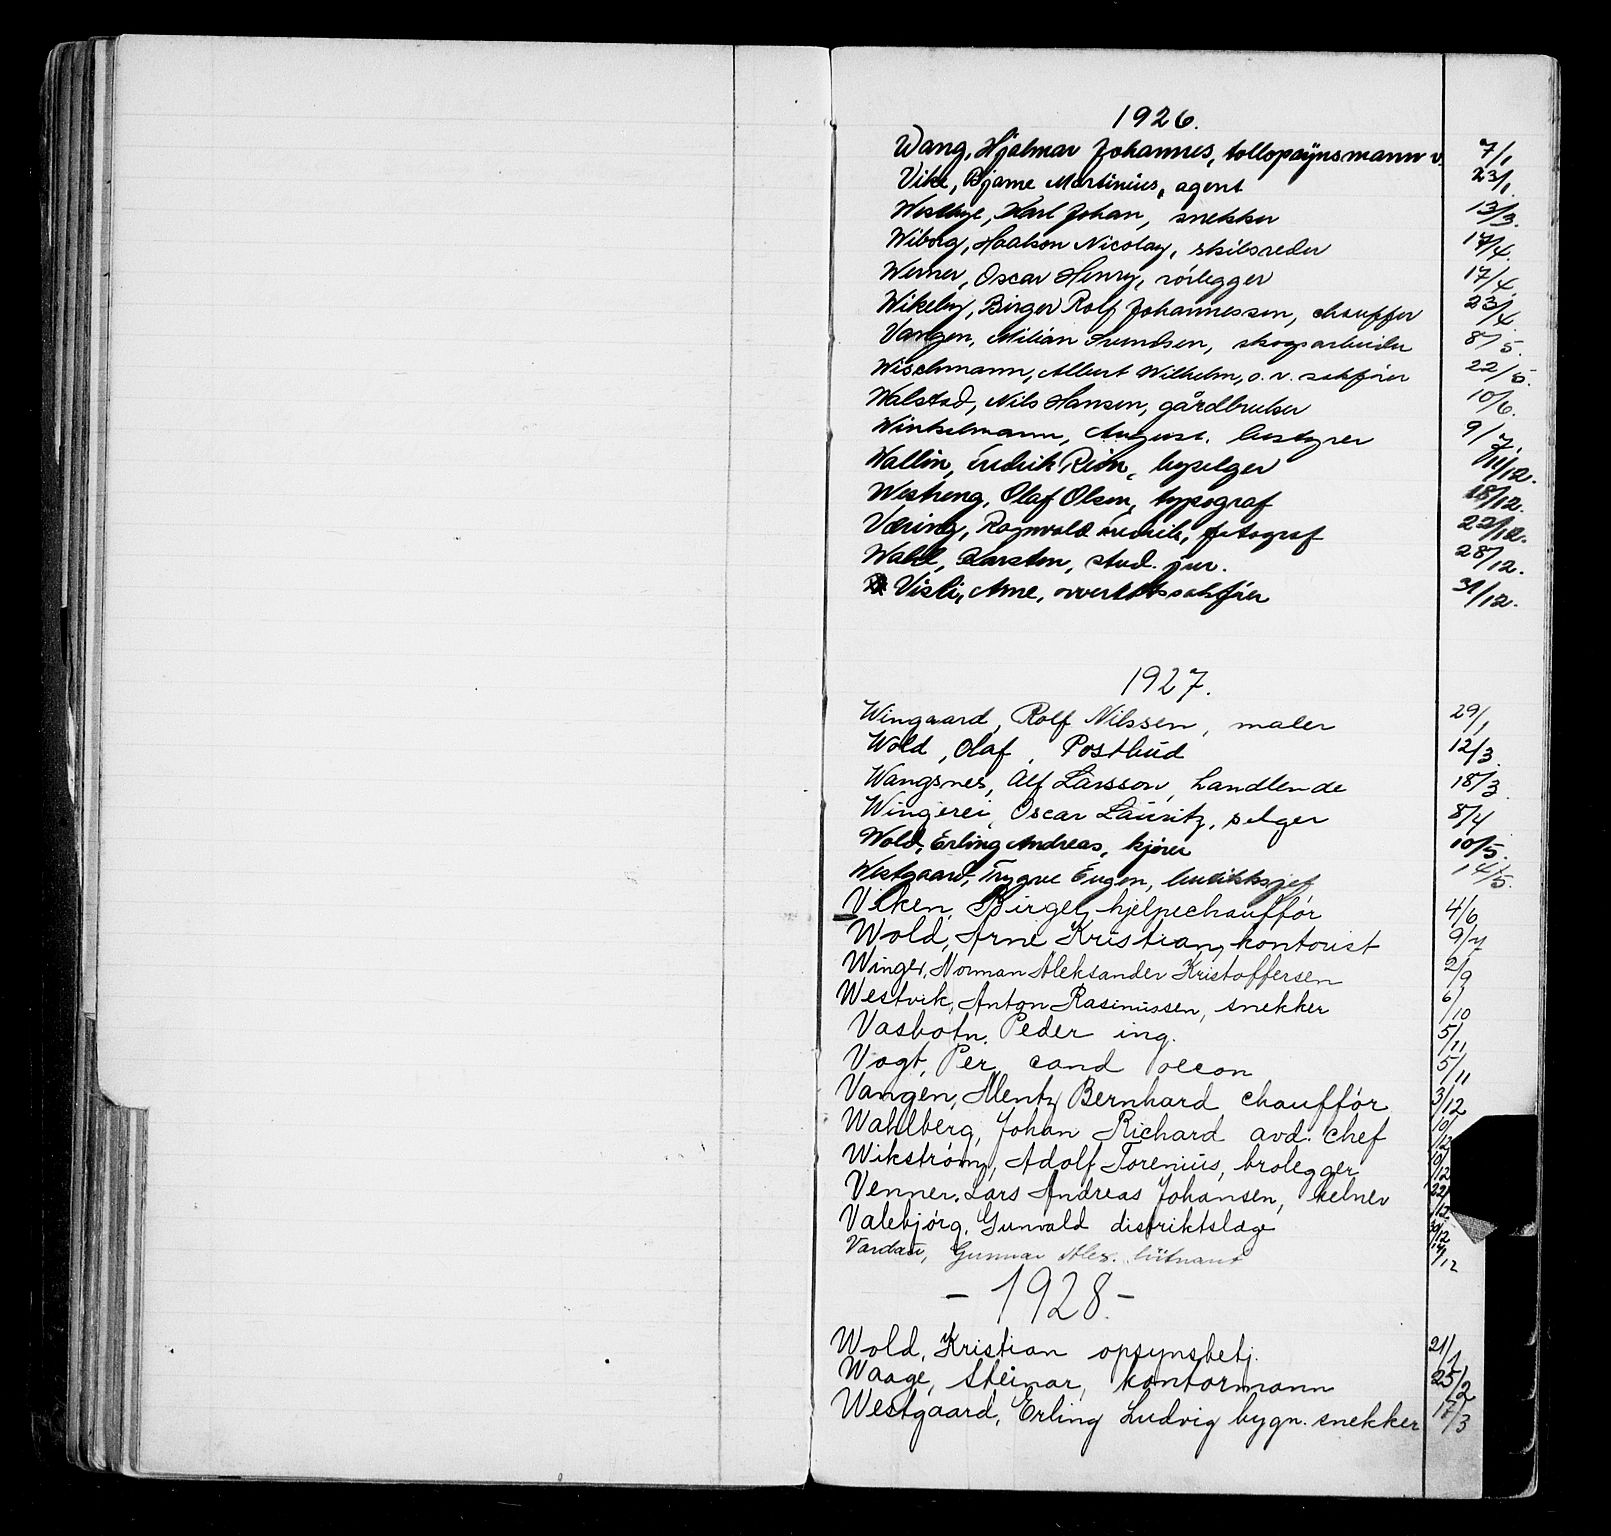 1926.
Wang, Hjalmar Johannes, tollopsynsmann v. 7/1
Vike, Bjarne Martinius, agent 23/1
Westbye, Karl Johan, snekker 13/3.
Wiborg, Haakon Nicolay, skibsreder 17/4.
Werner, Oscar Henry, rørlegger 17/4
Wikeby, Birger Rolf Johannessen, chauffør 23/4.
Vangen, Milian Svendsen, skogsarbeider 8/5.
Wischmann, Albert Wilhelm, o.r. sakfører 22/5.
Walstad, Nils Hansen, gårdbruker 10/6.
Winkelmann, August, bestyrer 9/7.
Wallin, Fredrik, byselger 11/12.
Westreng, Olaf Olsen, typograf 18/12.
Væring, Ragnvald Fredrik, fotograf 22/12.
Wahl, Karsten, stud. jur. 28/12.
Visti, Arne, overrettssakfører 31/12.
1927.
Wingaard, Rolf Nilssen, maler 29/1
Wold, Olaf, Postbud 12/3.
Wangsnes, Alf Larsson, handlende 18/3
Wingerei, Oscar Lauritz, selger 8/4
Wold, Erling Andreas, kjører 10/5.
Westgaard, Trygve Eugen, butikksjef 14/5.
Viken, Birger, hjelpechauffør 4/6
Wold, Arne Kristian, kontorist 9/7
Winger, Norman Aleksander Kristoffersen 2/9
Westvik, Anton Rasmussen, snekker 6/10
Vasbotn, Peder ing. 5/11
Vogt, Per, cand oecon 5/11
Vangen, Mentz Bernhard chauffør 3/12
Wahlberg, Johan Richard avd. chef 10/12
Wikstrøm, Adolf Torenius, brolegger 10/12
Venner, Lars Andreas Johansen, kelner 22/12
Valebjørg, Gunvald distriktslæge 30/12
Gunnar Alex. 14/12
- 1928. -
Wold, Kristian opsynsbetj. 21/1
Waage, Steinar, kontormann 25/2
Westgaard, Erling Ludvig bygn. snekker 17/3